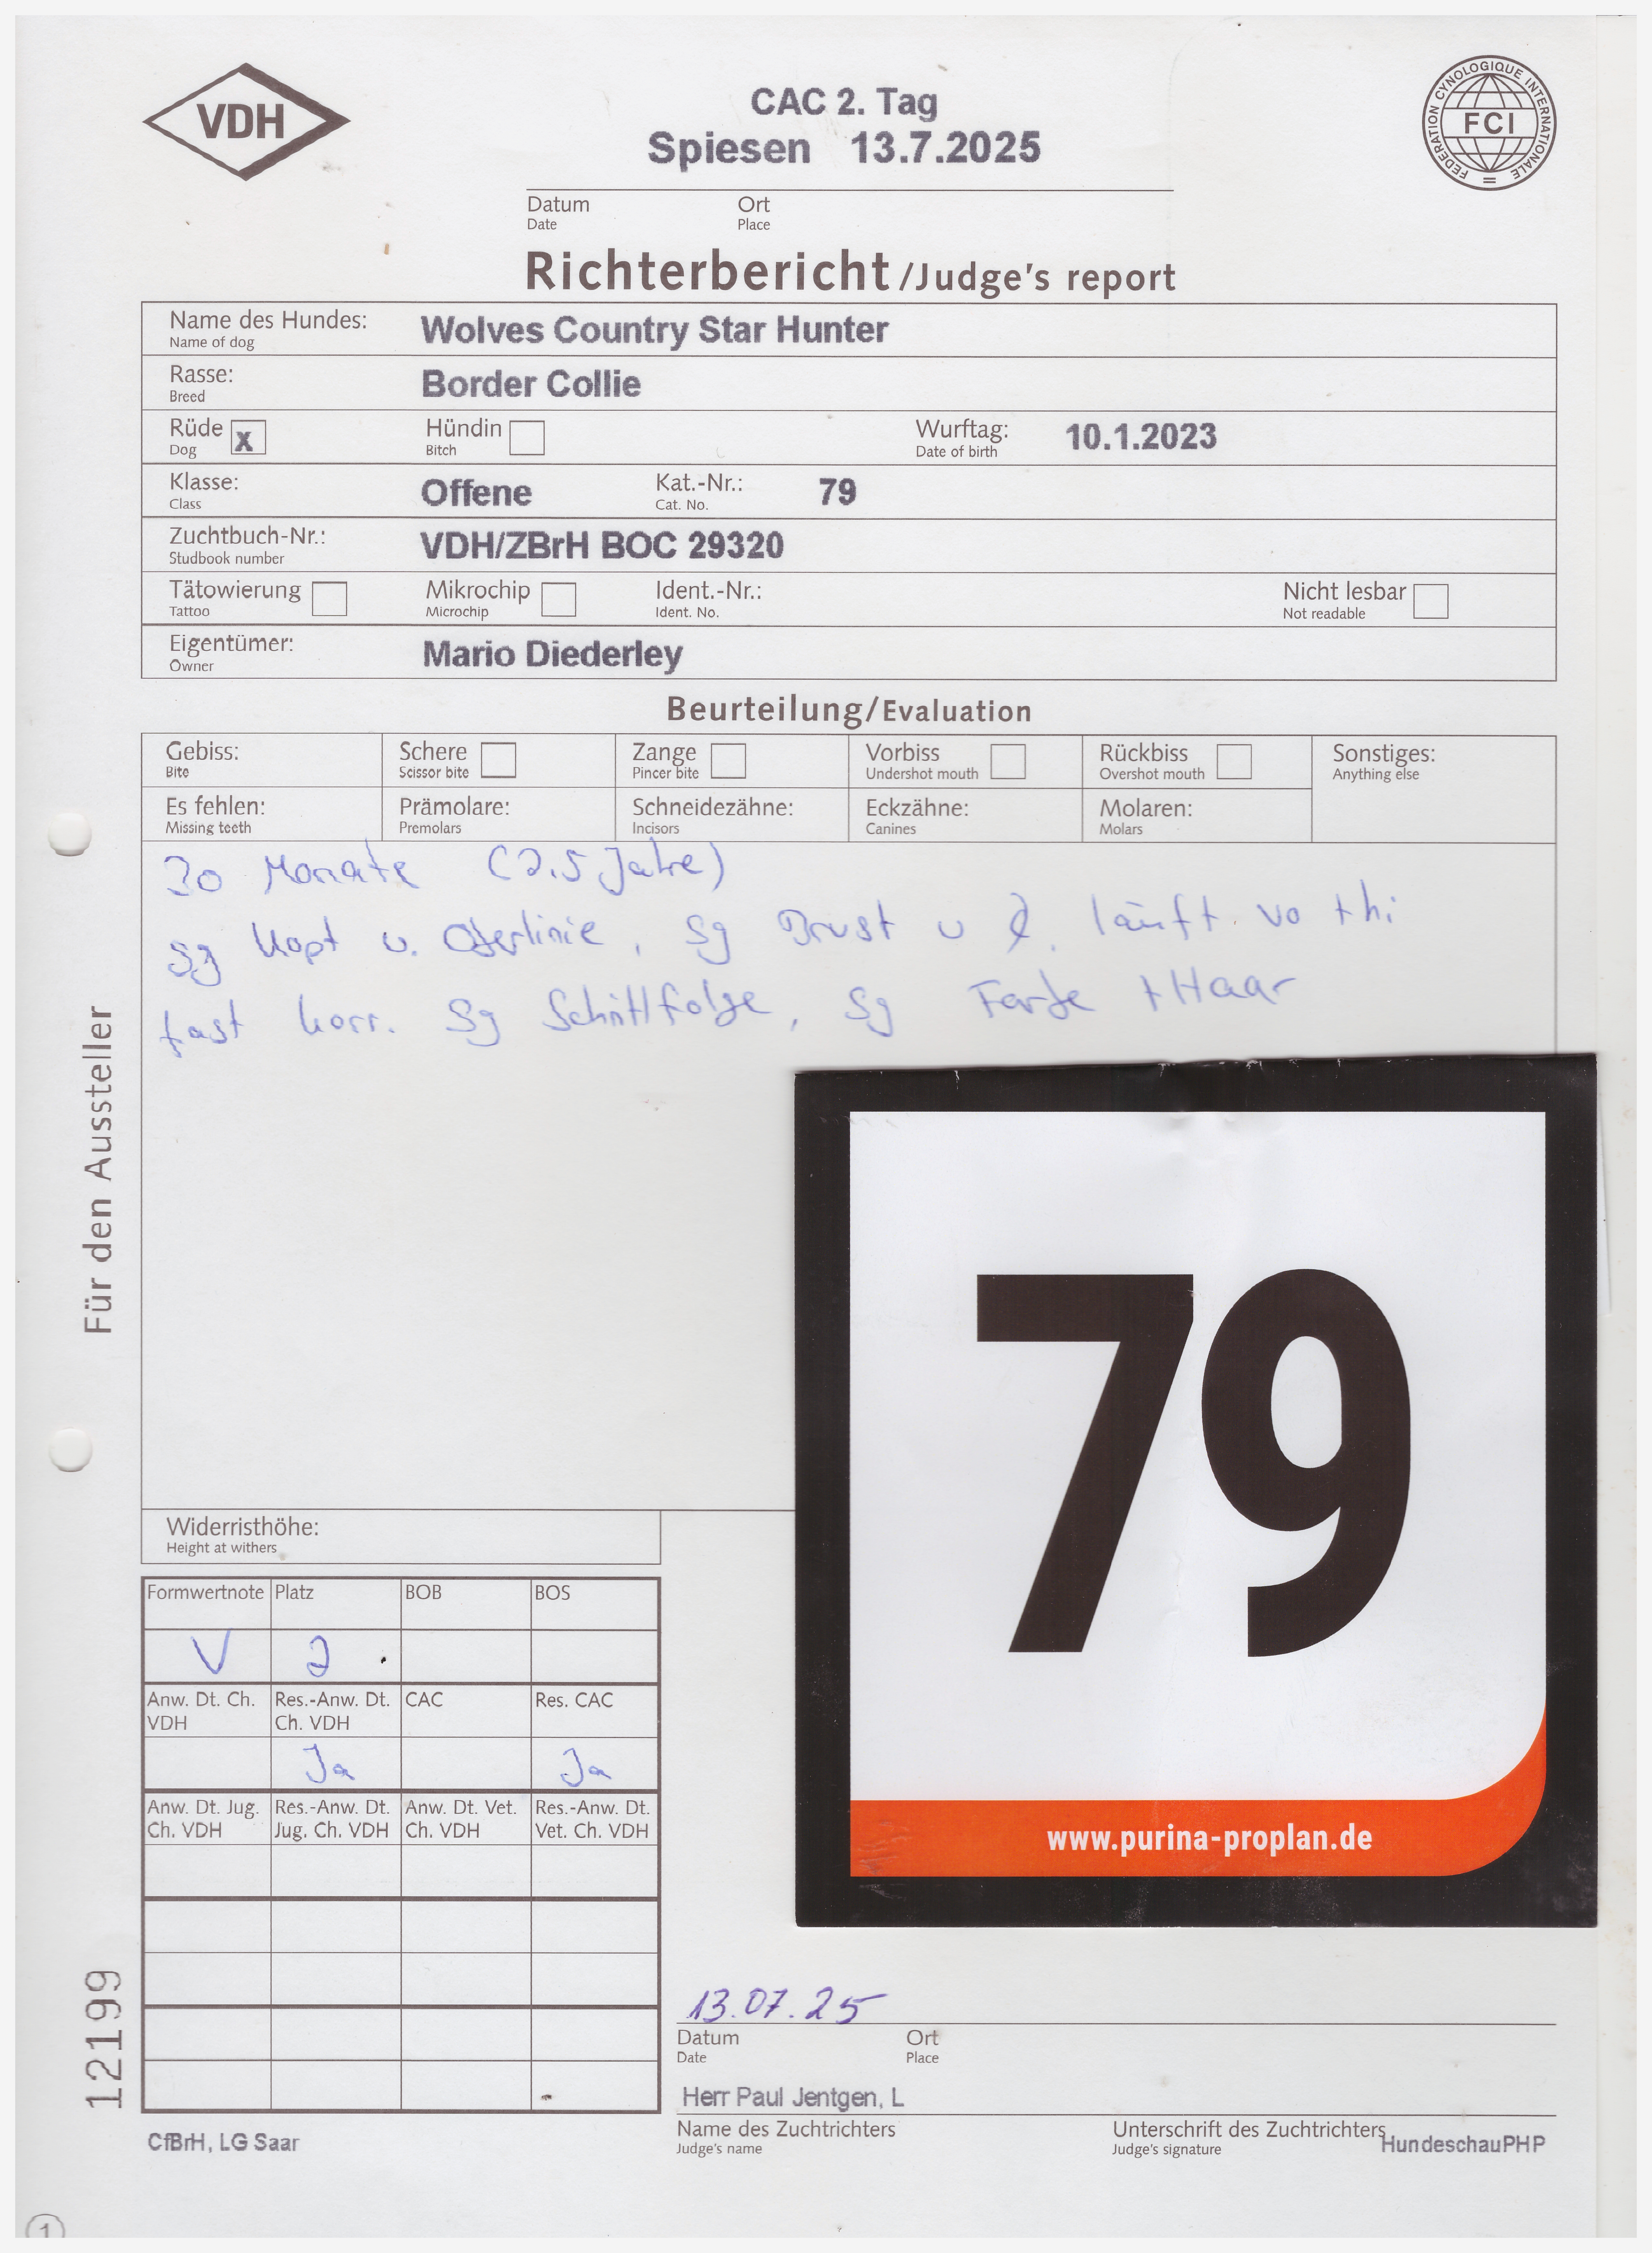 VDH
CAC 2. Tag
Spiesen 13.7.2025
FEDERATION CYNOLOGIQUE INTERNATIONALE
FCI
Datum Ort
Date Place
Richterbericht/Judge's report
Name des Hundes: Wolves Country Star Hunter
Name of dog
Rasse: Border Collie
Breed
Rüde x Hündin Wurftag: 10.1.2023
Dog Bitch Date of birth
Klasse: Offene Kat.-Nr.: 79
Class Cat. No.
Zuchtbuch-Nr.: VDH/ZBrH BOC 29320
Studbook number
Tätowierung Mikrochip Ident.-Nr.: Nicht lesbar
Tattoo Microchip Ident. No. Not readable
Eigentümer: Mario Diederley
Owner
Beurteilung/Evaluation
Gebiss: Schere Zange Vorbiss Rückbiss Sonstiges:
Bite Scissor bite Pincer bite Undershot mouth Overshot mouth Anything else
Es fehlen: Prämolare: Schneidezähne: Eckzähne: Molaren:
Missing teeth Premolars Incisors Canines Molars
30 Monate (2,5 Jahre)
sg Kopf u. Oberlinie, sg Brust u läuft vo + hi
fast korr. Sg Schrittfolge, sg Farbe + Haar
Für den Aussteller
79
www.purina-proplan.de
Widerristhöhe:
Height at withers
Formwertnote Platz BOB BOS
V 2
Anw. Dt. Ch. Res.-Anw. Dt. CAC Res. CAC
VDH Ch. VDH
Ja Ja
Anw. Dt. Jug. Res.-Anw. Dt. Anw. Dt. Vet. Res.-Anw. Dt.
Ch. VDH Jug. Ch. VDH Ch. VDH Vet. Ch. VDH
12199
13.07.25
Datum Ort
Date Place
Herr Paul Jentgen, L
Name des Zuchtrichters Unterschrift des Zuchtrichters
Judge's name Judge's signature
CfBrH, LG Saar HundeschauPHP
1